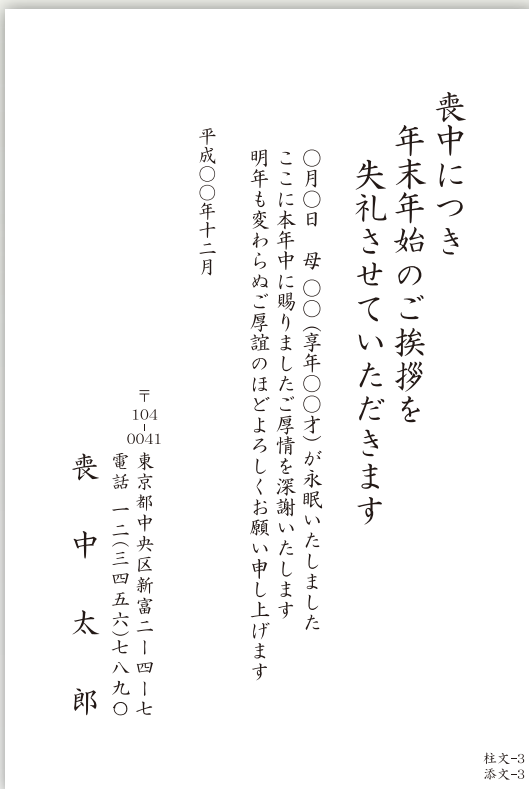 喪中につき
年末年始のご挨拶を
失礼させていただきます
〇月〇日　母　〇〇（享年〇〇才）が永眠いたしました
ここに本年中に賜りましたご厚情を深謝いたします
明年も変わらぬご厚誼のほどよろしくお願い申し上げます
平成〇〇年十二月
〒104-0041
東京都中央区新富二ー四ー七
電話　一二（三四五六）七八九〇
喪中太郎
柱文-3
添文-3